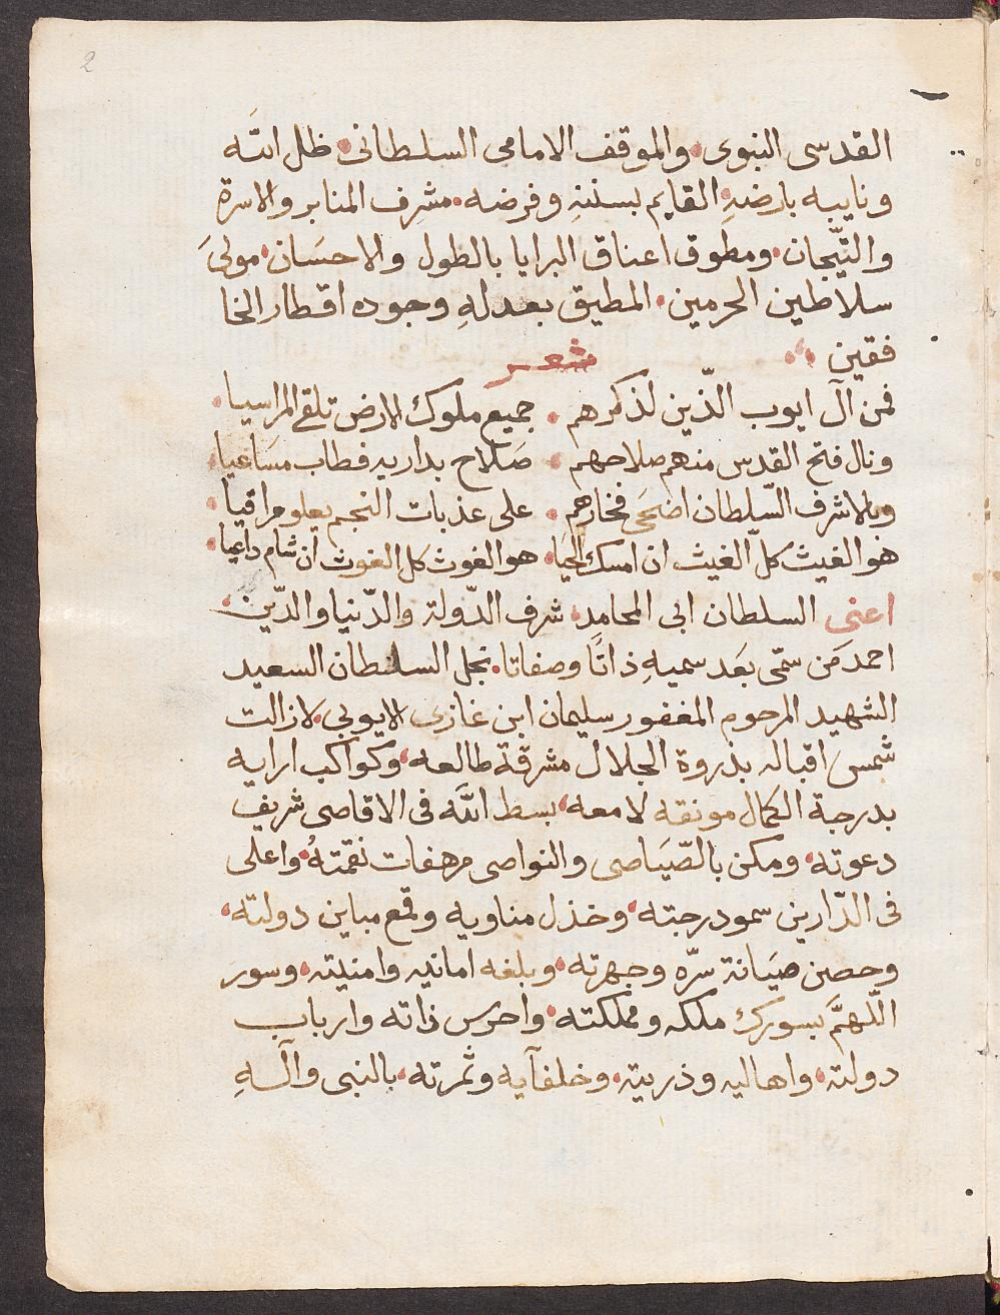 2
القدسى النبوى والموقف الامامى السلطانى ظل الله
ونايبه بارضهِ القايم بسننهِ وفرضه مشرِف المنابر والاسرة
والتّيجان ومطوق اعناق البرايا بالطول والاحسَان مولىَ
سلاطين الحرمين المطيق بعدلهِ وجوده اقطار الخا
فقين
شعر
فمن آل ايوب الذّين لذكرهم جميع ملوك الارض تلقى المراسيا
ونال فتح القدس منهم صلاحهم صَلاح بداريه فطاب مسَاعيا
وبالاشرف السّلطان اضحَى فخارهم على عذبات النجم يعلو مراقيا
هو الغيث كلّ الغيث ان امسك الحيَا هو الغوث كل الغوث ان شام داعيا
اعنى السلطان ابى المحامد شرف الدّولة والدّنيا والدّين
احمد مَن سمّى بَعد سميهِ ذاتًا وصفاتا نجل السلطان السعيد
الشهيد المرحوم المغفور سليمان ابن غازى الايوبى لازالت
شمس اقباله بذروة الجلال مشرقة طالعه وكواكب ارايه
بدرجة الكمال مونقه لامعه بسط الله فى الاقاصى شريف
دعوته ومكن بالصّيَاصى والنواصى مرهفات نقمتهُ واعلى
فى الدّارين سمو درجته وخذل مناويه وقمع مباين دولته
وحصن صيَانة سرّه وجهرته وبلغه امانيه وامنيته وسور
اللّهمَّ بسورك ملكه ومملكته واحرس ذاته وارباب
دولته واهاليه وذريته وخلفآيه وثمرته بالنبى وآلهِ